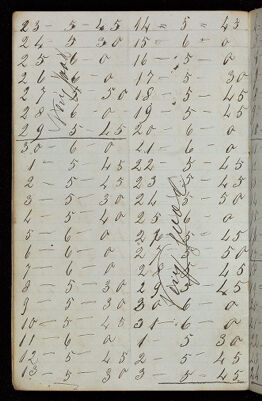 23 - 5 - 45
24 - 5 30
25 6 - 0
26 6 - 0
27 - 50
28 6 - 0
29 5 - 45
30 6 - 0
1 - 5 45
2 - 5 - 45
3 - 5 - 30
4 - 5 40
5 - 6 - 0
6 - 6 - 0
7 - 6 0
8 - 5 - 30
9 - 5 - 30
10 - 5 - 45
11 - 6 0
12 - 5 45
13 - 5 30
14 - 5 - 45
15 - 6 - 0
16 - 5 - 0
17 - 5 30
18 - 5 - 45
19 - 5 45
20 6 - 0
21 - 6 0
22 - 5 - 45
23 5 - 45
24 5 - 50
25 6 0
45
0
45
45
30 6 0
31 - 6 - 0
1 5 30
2 - 5 - 45
3 - 5 - 45
Very good